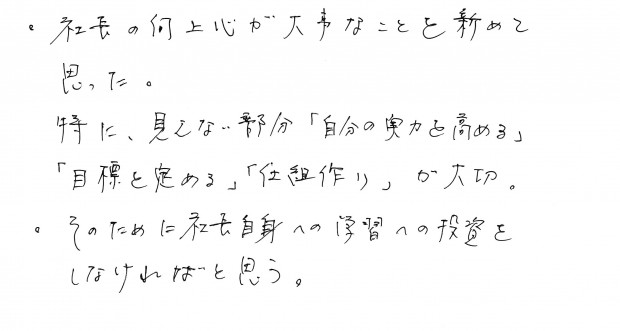 ・社長の何上心が大事なことを新めて
思った。
特に、見えない部分「自分の実力を高める」
「目標を定める」「仕組作り」が大切。
・そのために社長自身への学習への投資を
しなければと思う。